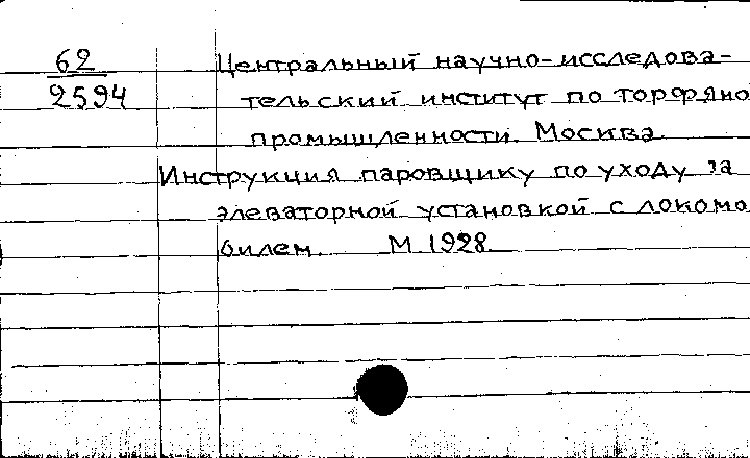 62
2594
Центральный научно-исследова-
тельский институт по торфяно
промышленности. Москва.
Инструкция паровщику по уходу за
элеваторной установкой с локомо
билем. М 1928